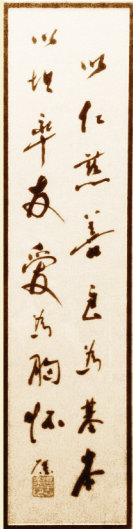 以仁慈善良為基本
以坦率友愛為胸怀